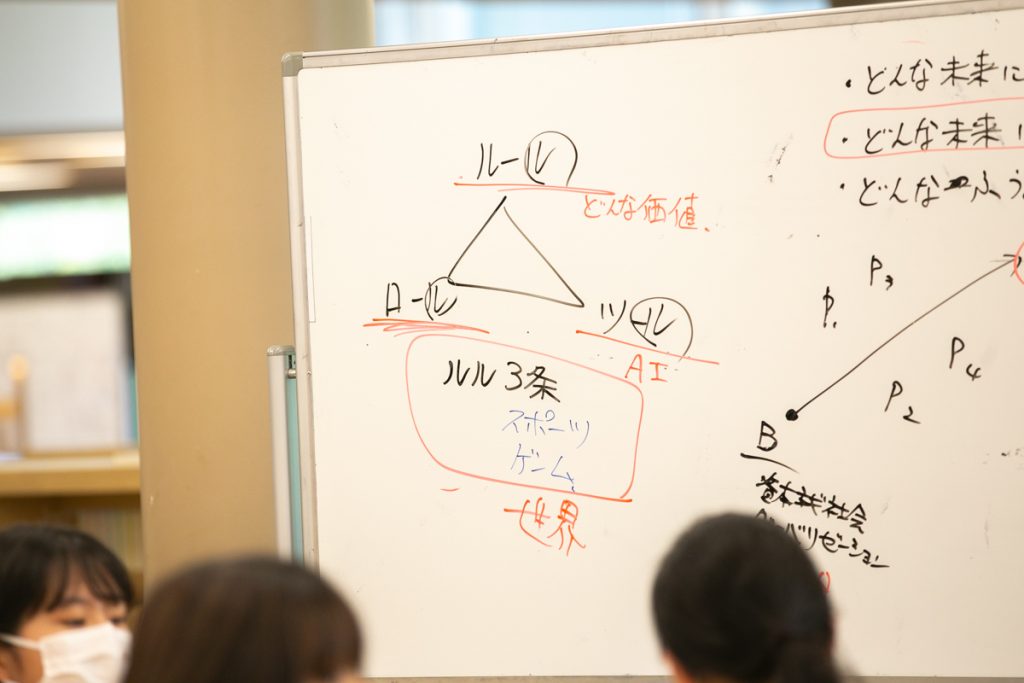 ルール
どんな価値、
ロール
ツール
AI
ルル3条
スポーツ
ゲーム、
世界
・どんな未来に
・どんな未来
・どんな ふう
P3
P1
P4
P2
B
資本主義社会
グローバリゼーション